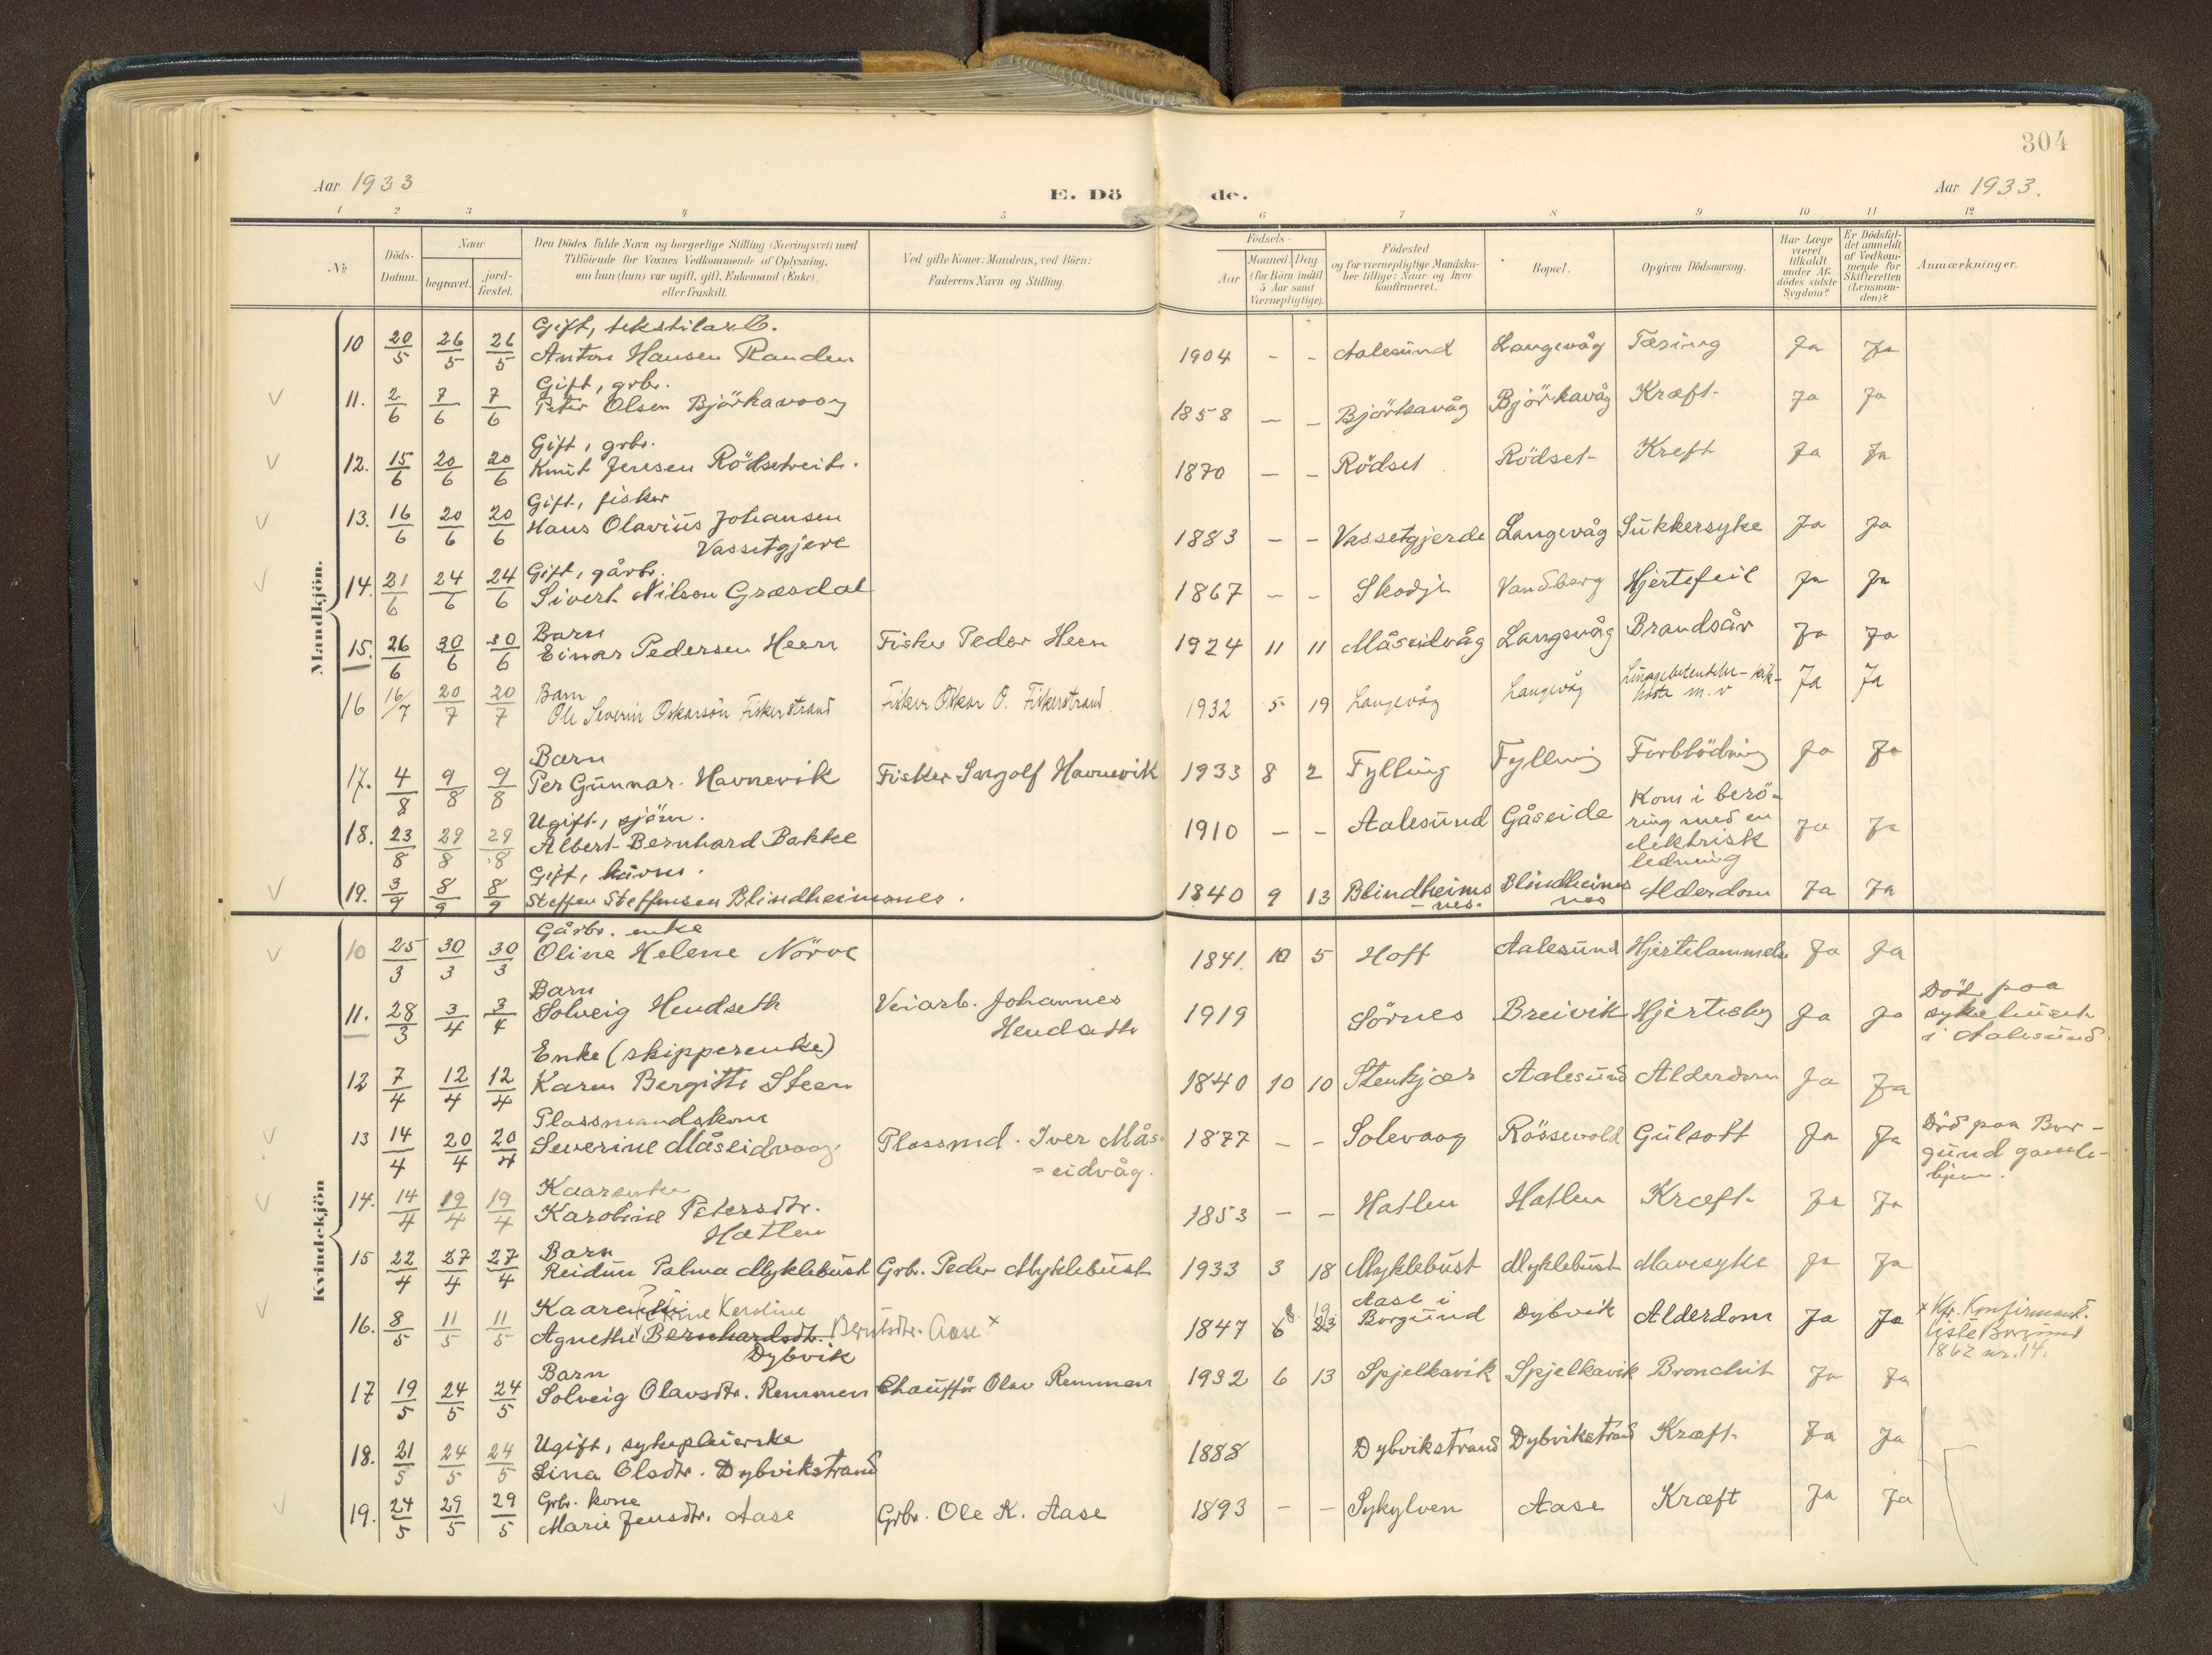 304
Aar 1933
E. Dö
de.
Aar 1933.
1 2 3 4 5 6 7 8 9 10 11 12
№
Döds-
Datum.
Naar
begravet.
jord-
fæstet.
Den Dödes fulde Navn og borgerlige Stilling (Næringsvei) med
Tilföiende for Voxnes Vedkommende af Oplysning,
om han (hun) var ugift, gift, Enkemand (Enke),
eller fraskilt.
Ved gifte Koner: Mandens, ved Börn:
Faderens Navn og Stilling.
Födsels-
Aar
Maaned. Dag.
(for Börn indtil
5 Aar samt
Værnepligtige).
Födested
og for værnepligtige Mandska-
ber tillige: Naar og hvor
konfirmeret.
Bopæl.
Opgiven Dödsaarsag.
Har Læge
været
tilkaldt
under Af-
dödes sidste
Sygdom?
Er Dödsfal-
det anmeldt
af Vedkom-
mende for
Skifteretten
(Lensman-
den)?
Anmærkninger.
Mandkjön.
Gift, tekstilarb.
10 20/5 26/5 26/5 Anton Hansen Randen 1904 - - Aalesund Langevåg Tæring Ja Ja
Gift, grbr.
11. 2/6 7/6 7/6 Peter Olsen Björkavaag 1858 - - Björkavåg Björkavåg Kræft Ja Ja
Gift, grbr.
12. 15/6 20/6 20/6 Knut Jensen Rödsetreit. 1870 - - Rödset Rödset Kreft Ja Ja
Gift, fisker
13. 16/6 20/6 20/6 Hans Olavius Johansen 1883 - - Vassetgjerde Langevåg Sukkersyke Ja Ja
Vassetgjere
Gift, gårbr.
14. 21/6 24/6 24/6 Sivert Nilsen Græsdal 1867 - - Skodje Vandberg Hjertefeil Ja Ja
Barn
15. 26/6 30/6 30/6 Einar Pedersen Heen Fisker Peder Heen 1924 11 11 Måseidvåg Langevåg Brandsår Ja Ja
Barn
16 16/7 20/7 20/7 Ole Severin Oskarsön Fiskerstrand Fisker Oskar O. Fiskerstrand. 1932 5 19 Langevåg Langevåg Lungebetendelse - kik-
hoste m.v Ja Ja
Barn
17. 4/8 9/8 9/8 Per Gunnar Havnevik Fisker Ingolf Havnevik 1933 8 2 Fylling Fylling Forblödning Ja Ja
Ugift, sjöm.
18. 23/8 29/8 29/8 Albert Bernhard Bakke 1910 - - Aalesund Gåseide Kom i berö-
ring med en
elektrisk
ledning Ja Ja
Gift, husm.
19. 3/9 8/9 8/9 Steffen Steffensen Blindheimsnes. 1840 9 13 Blindheims
-nes. Blindheims
nes Alderdom Ja Ja
Kvindekjön
Gårbr. enke
10 25/3 30/3 30/3 Oline Helene Nörve 1841. 10 5 Hoff Aalesund Hjertelammelse Ja Ja
Barn
11. 28/3 3/4 3/4 Solveig Hendseth Veiarb. Johannes
Hendseth 1919 Sörnes Breivik Hjertesyg Ja Ja Död paa
sykehuset
i Aalesund.
Enke (skipperenke)
12 7/4 12/4 12/4 Karen Bergitte Steen 1840 10 10 Stenkjær Aalesund Alderdom Ja Ja
Plassmandskone
13 14/4 20/4 20/4 Severine Måseidvaag Plassmd. Iver Mås-
=eidvåg. 1877 - - Solevaag Rössevold Gulsott Ja Ja Död paa Bor-
gund gamle-
hjem.
Kaarenke
14. 14/4 19/4 19/4 Karoline Petersdtr. 1853 - - Hatlen Hatlen Kræft Ja Ja
Hatlen
Barn
15 22/4 27/4 27/4 Reidun Palma Myklebust Grb. Peder Myklebust 1933 3 18 Myklebust Myklebust Mavesyke Ja Ja
Kaarenke Karoline
16. 8/5 11/5 11/5 Agnethe Bernhardsdtr. Berntsdtr. Aase x
Dybvik 1847 6 8 23 19 Aase i
Borgund Dybvik Alderdom Ja Ja x Kfr. Konfirmant-
liste Borgund
1862 nr. 14.
Barn
17 19/5 24/5 24/5 Solveig Olavsdtr. Remmen Chaufför Olav Remmen 1932 6 13 Spjelkavik Spjelkavik Bronchit Ja Ja
Ugift, sykepleierske
18. 21/5 24/5 24/5 Lina Olsdtr. Dybvikstrand 1888 Dybvikstrand Dybvikstrand Kræft Ja Ja
Grbr. kone
19. 24/5 29/5 29/5 Marie Jensdtr. Aase Grbr. Ole K. Aase 1893 - - Sykylven Aase Kræft Ja Ja